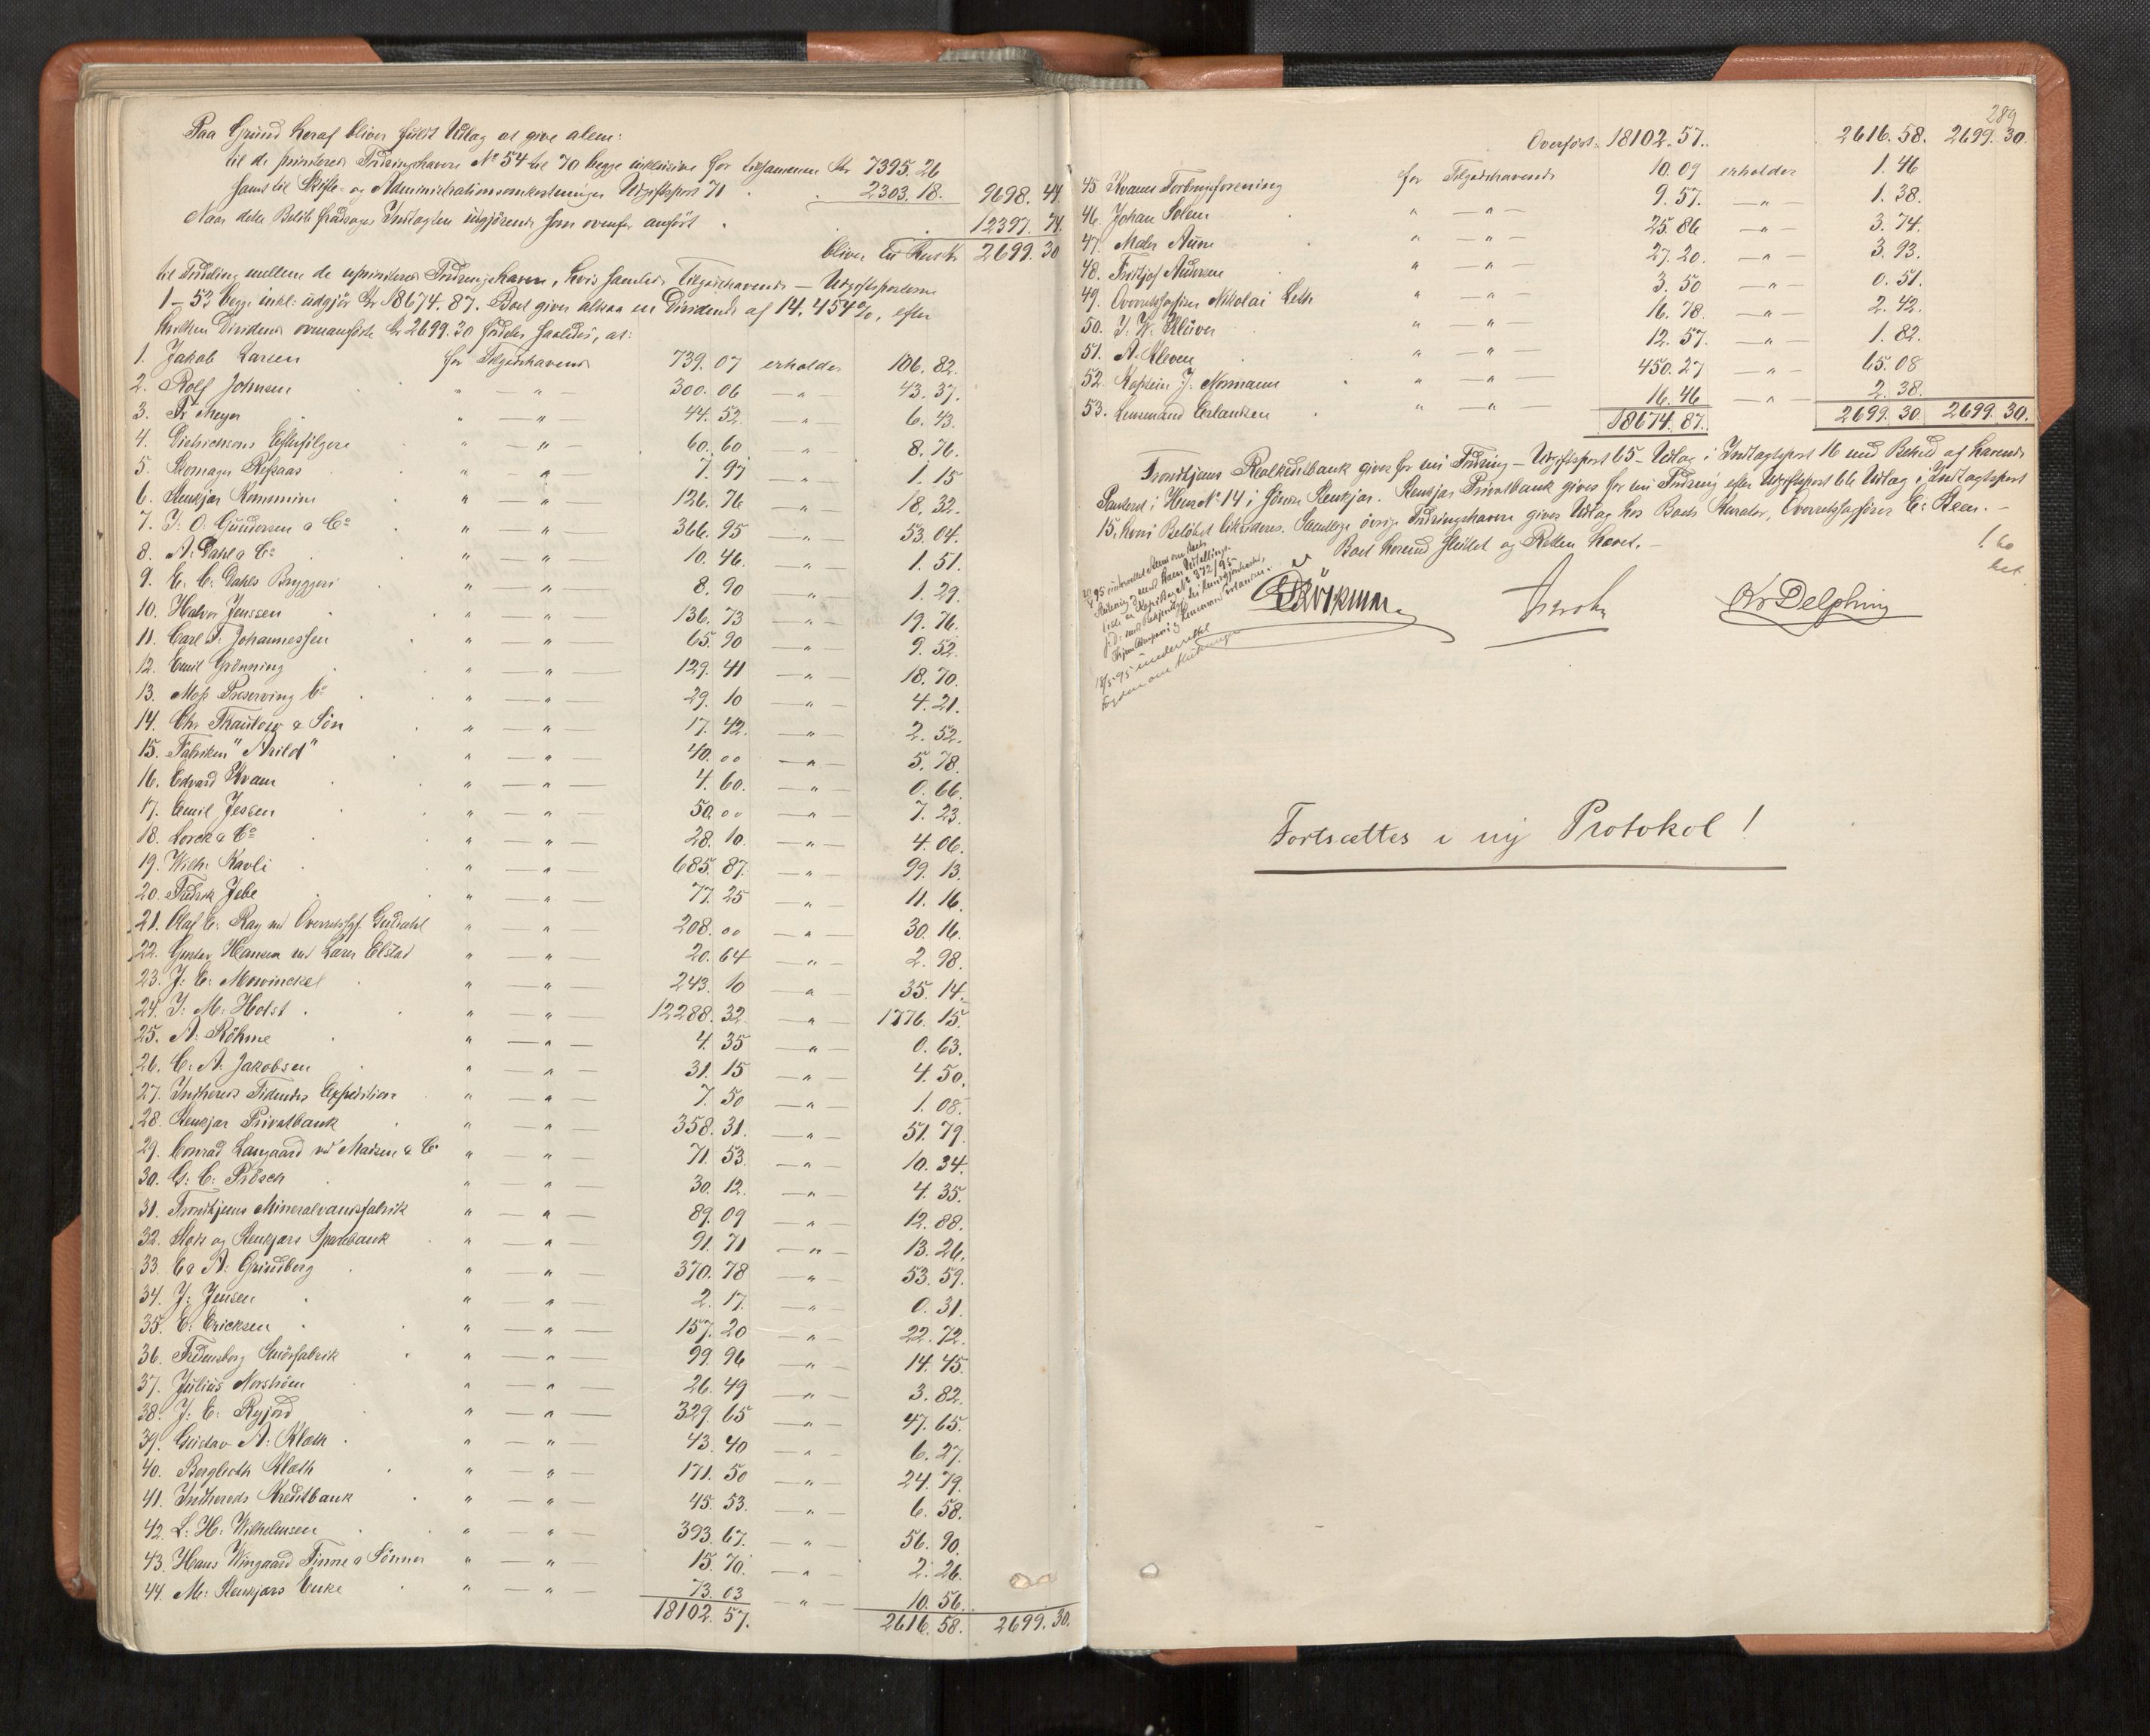 Paa Grund heraf bliver fuldt Udlag at give alene:
til de prioriterede Fordringshavere No 54 til 70 begge inklusive for tilsammen Kr 7395.26
samt til Skifte- og Administrationsomkostninger Udgiftspost 71 . . 2303.18. 9698.44
Naar dette Beløb fradrages Indtægten udgjørende som ovenfor anført . . 12397.74.
bliver til Rest Kr 2699.30
til Fordeling mellem de uprioriterede Fordringshavere, hvis samlede Tilgodehavende – Udgiftsposterne
1–53 begge inkl: udgjør Kr 18674.87. Boet giver altsaa en Dividende af 14,454%, efter
hvilken Dividende ovenanførte Kr 2699.30 fordeles saaledes, at:
1. Jakob Larsen for Tilgodehavende 739.07 erholder 106.82.
2. Rolf Johnsen " — " — 300.06 — " — 43.37.
3. Fr Meyer " — " 44.52 — " — 6.43.
4. Dietrichsons Efterfølgere " — " — 60.60 — " — 8.76.
5. Skomager Refsaas " — " — 7.97 — " — 1.15
6. Stenkjær Kommune " — " — 126.76 — " — 18.32.
7. J: O: Gundersen & Co " — " — 366.95 — " — 53.04.
8. A: Dahl & Co " — " — 10.46. — " — 1.51.
9. E. C: Dahls Bryggeri " — " — 8.90 — " — 1.29.
10. Halvor Jenssen " — " — 136.73 — " — 19.76.
11. Carl F: Johannessen " — " — 65.90 — " — 9.52.
12. Emil Grønning " — " — 129.41 — " — 18.70.
13. Moss Preserving Co " — " — 29.10 — " — 4.21.
14. Chr Thaulow & Søn " — " — 17.42. — " — 2.52.
15. Fabriken "Arild" " — " — 40.00 — " — 5.78.
16. Edvard Kvam " — " — 4.60. — " — 0.66.
17. Emil Jessen " — " — 50.00 — " — 7.23.
18. Lorck & Co " — " — 28.10. — " — 4.06.
19. Wilh: Kavli " — " — 685.87. — " — 99.13.
20. Fredrik Jebe " — " — 77.25 — " — 11.16.
21. Olaf C: Ray ved Overretssagf. Guldahl " — " — 208.00 — " — 30.16.
22. Gustav Hansen ved Lars Elstad " — " — 20.64 — " — 2.98.
23. J: E: Mowinckel " — " — 243.10 — " — 35.14.
24. J: M: Holst " — " — 12288.32. — " — 1776.15.
25. A: Röhme " — " — 4.35 — " — 0.63.
26. C: A: Jakobsen " — " — 31.15 — " — 4.50.
27. Indhereds Tidendes Expedition " — " — 7.50 — " — 1.08.
28. Stenkjær Privatbank " — " — 358.31. — " — 51.79.
29. Conrad Langaard ved Madsen & Co " — " — 71.53. — " — 10.34.
30. G: C: Prösch " — " — 30.12. — " — 4.35.
31. Trondhjems Mineralvandsfabrik " — " — 89.09 — " — 12.88.
32. Stods og Stenkjærs Sparebank " — " — 91.71 — " — 13.26.
33. A: Grindberg " — " — 370.78 — " — 53.59.
34. J: Jensen " — " — 2.17. — " — 0.31.
35. E: Ericksen " — " — 157.20 — " — 22.72.
36. Fredensborg Smørfabrik " — " — 99.96 — " — 14.45.
37. Julius Norström " — " — 26.49 — " — 3.82.
38. J: E: Ryjord " — " — 329.65 — " — 47.65.
39. Gustav A: Klæth " — " — 43.40 — " — 6.27.
40. Berglioth Klæth " — " — 171.50 — " — 24.79.
41. Indhereds Kreditbank " — " — 45.53. — " — 6.58.
42. L: H: Wilhelmsen " — " — 393.67. — " — 56.90.
43. Hans Wingaard Finne & Sønner " — " — 15.70. — " — 2.26.
44. M: Stenkjærs Enke " — " — 73.03 — " — 10.56.
18102.57. 2616.58. 2699.30.
289
Overført: 18102.57. 2616.58. 2699.30.
45 Kvams Forbrugsforening for Tilgodehavende 10.09 erholder 1.46
46. Johan Solem " — " — 9.57. — " — 1.38.
47. Maler Aune " — " — 25.86 — " — 3.74.
48. Fridtjof Andersen " — " — 27.20. — " — 3.93.
49. Overretssagfører Nikolai Leth " — " — 3.50 — " — 0.51.
50. J. W. Klüver " — " — 16.78. — " — 2.42.
51. A. Kleven " — " — 12.57. — " — 1.82.
52. Kaptein J: Normann " — " — 450.27 — " — 65.08
53. Lensmand Erlandsen " — " — 16.46 — " — 2.38.
18674.87. 2699.30 2699.30.
Trondhjems Realkreditbank gives for sin Fordring – Udgiftspost 65 – Udlag i Indtægtspost 16 med Beløb af havende
Panteret i Hus No 14 i søndre Stenkjær. Stenkjær Privatbank gives for sin Fordring efter Udgiftspost 66 Udlag i Indtægtspost
15, hvori Beløbet likvideres. Samtlige øvrige Fordringshavere gives Udlag hos Boets Kurator, Overretssagfører C: Steen. –
Boet herved sluttet og Retten hævet. –
Kr Delphin
18/5 95 underrettet
Fogden om Slutningen
Fortsættes i ny Protokol !